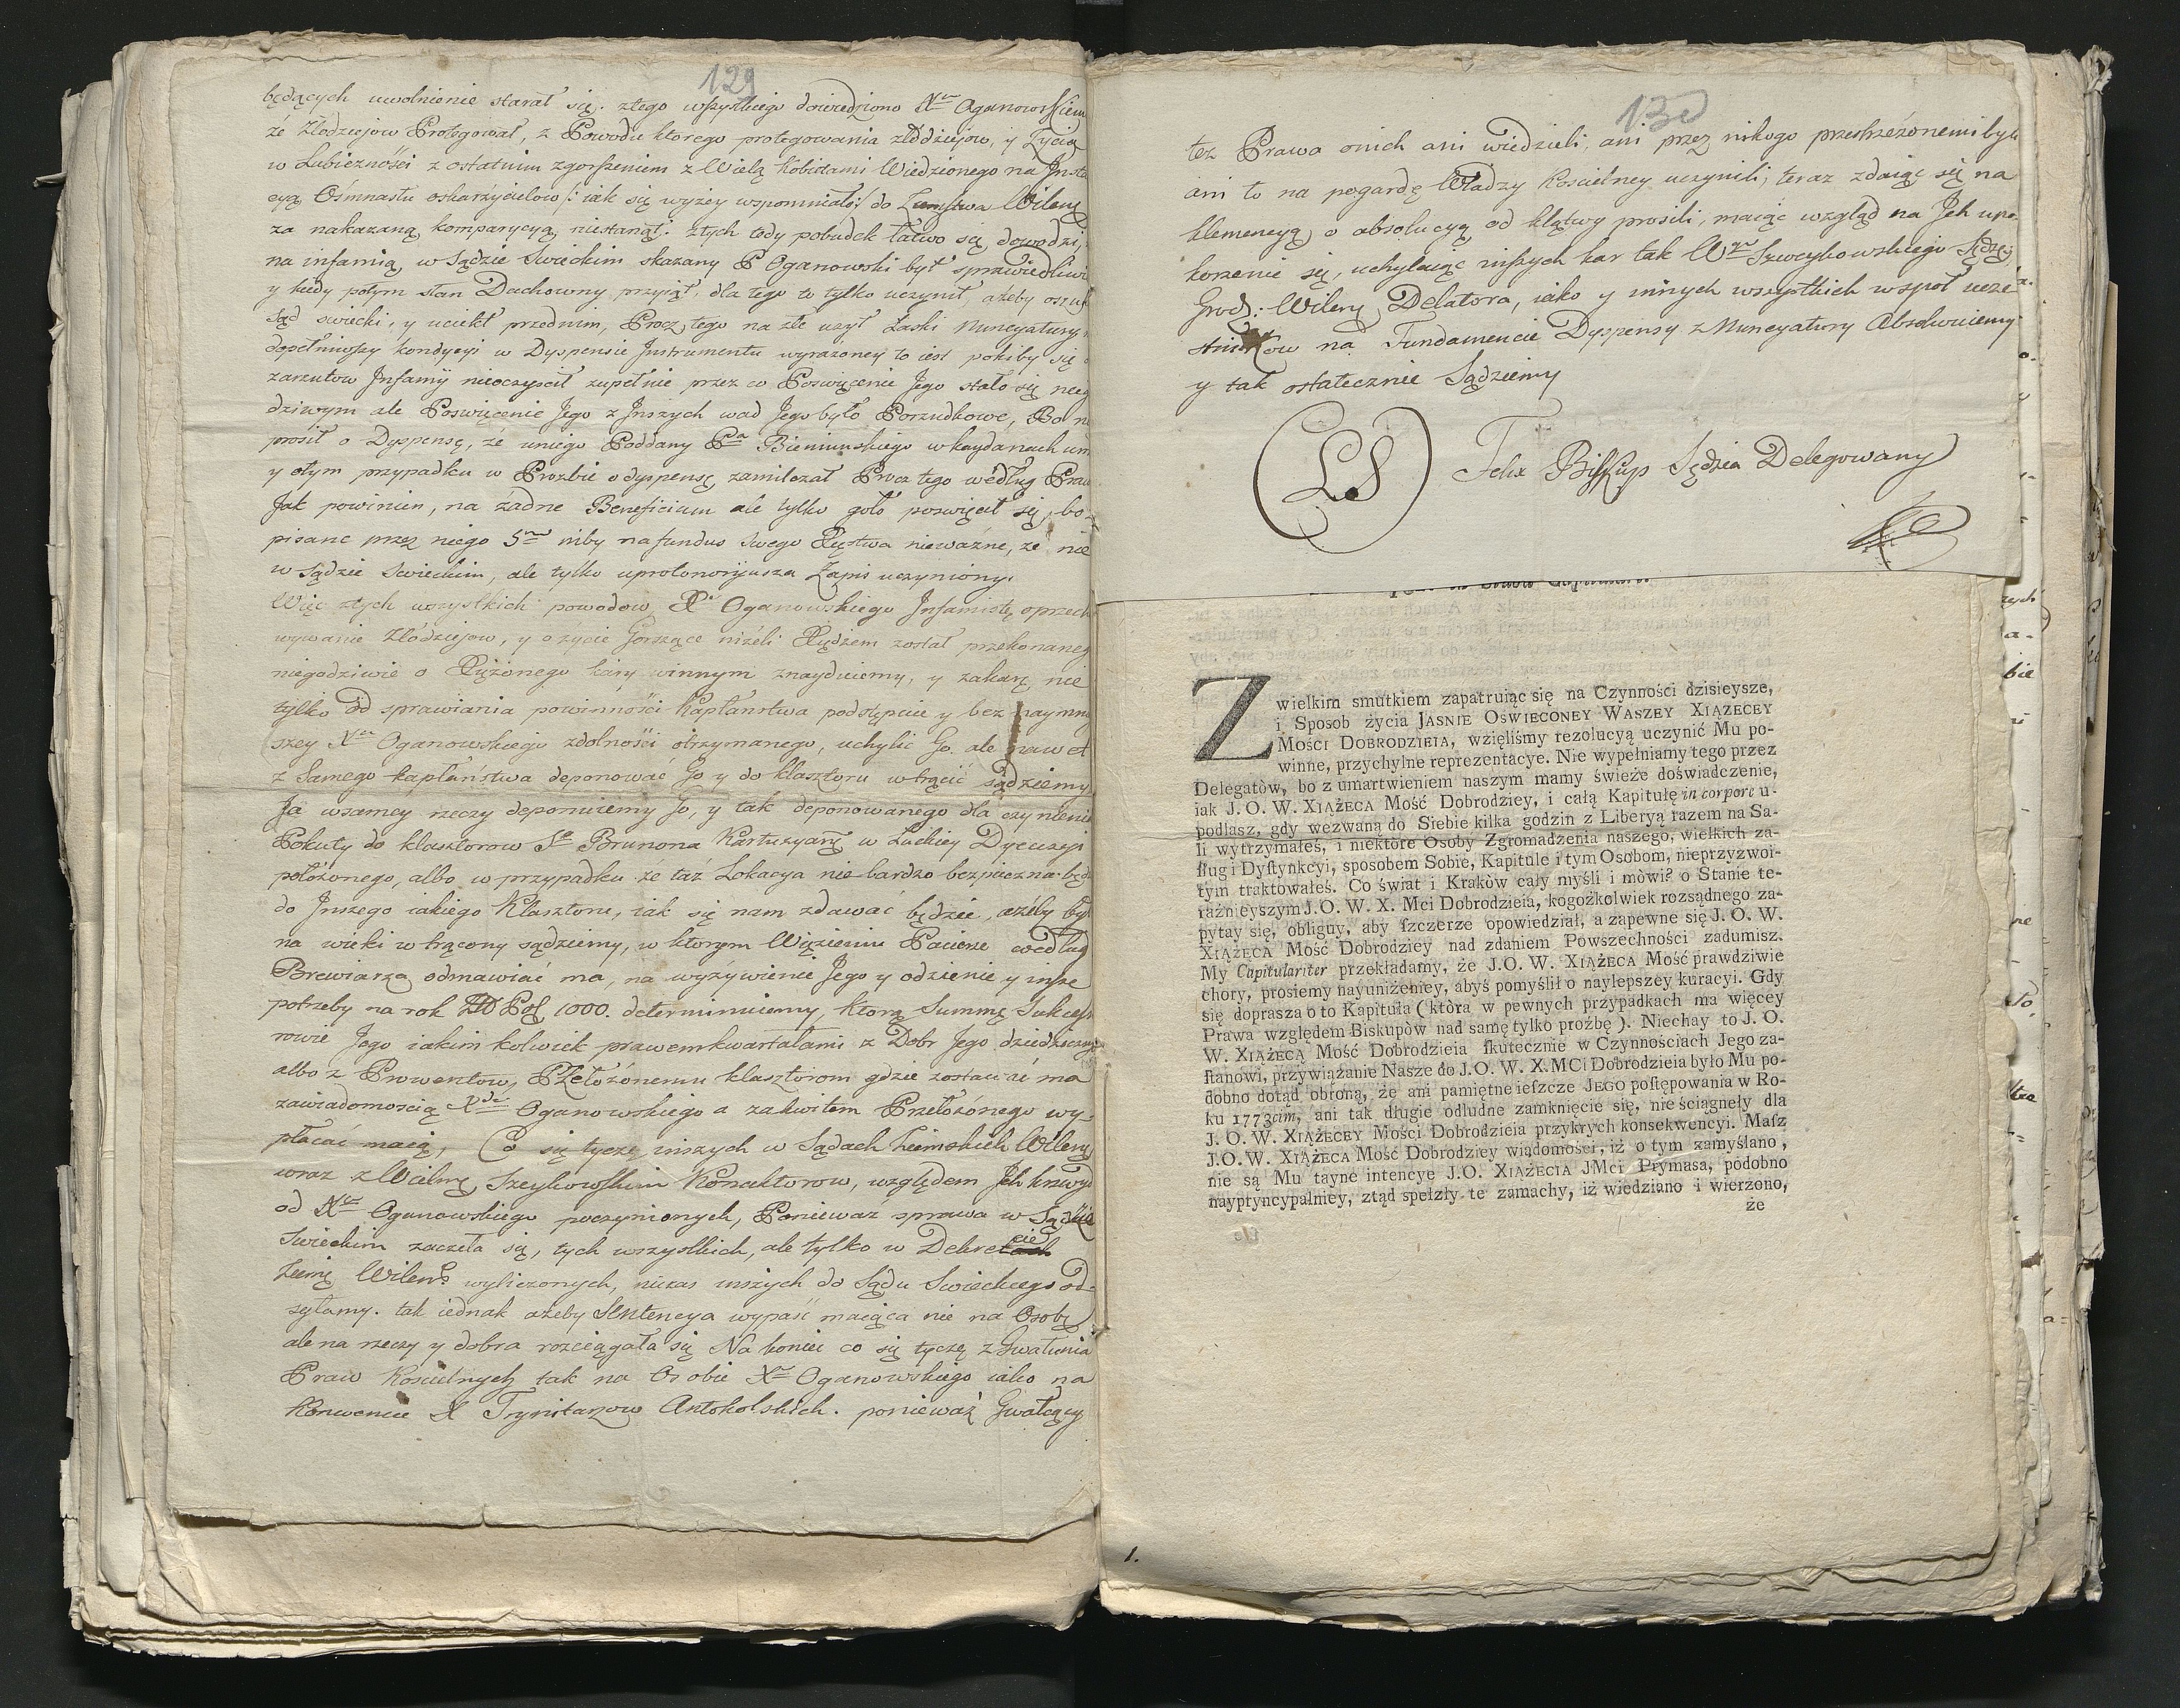 129
będących uwolnienie starał się. ztego wszystkiego dowiedziono Xu Oganowskiem
że Złodziejow Protegował, z Powodu ktorego protegowania złodziejow, y Zycia
w Lubieżności z ostatnim zgorszeniem z Wielą Kobietami Wiedzionego na Insta
cyą Osmnastu oskarżycielow /: iak się wyżey wspomniało :/ do Ziemstwa Wileng
za nakazaną komparycyą niestanął. ztych tedy pobudek łatwo się dowodzi,
na infamią w Sądzie Swieckim skazany P Oganowski był sprawiedliwi
y kiedy potym stan Duchowny przyiął, dla tego to tylko uczynił, ażeby oszuk
sąd swiecki, y uciekł przednim, Procz tego na złe użył Łaski Nuncyatury
dopełniwszy kondycyi w Dyspensie Instrumentu wyrażoney to iest pokiby się
zarzutow Infamij nieoczyscił zupełnie przez co Poswięcenie Jego stało się nieg
dziwym ale Poswięcenie Jego z Inszych wad Jego było Porzudkowe, Bo n
prosił o Dyspensę, że uniego Poddany Pa Bieniunskiego w kaydanach um
y otym przypadku w Prozbie o dyspensę zamilczał Procz tego według Praw
Jak powinien, na żadne Beneficium ale tylko goło poswięcił się, bo
pisane przez niego 5 niby na fundus swego Xięstwa nieważne, ze nie
w Sądzie Swieckim, ale tylko uprotonoryusza Zapis uczyniony.
Więc ztych wszystkich powodow, X Oganowskiego Infamistę, oprzech
wywanie Złódziejow, y o życie Gorszące niżeli Xiędzem został przekonaney
niegodziwie o Xiężonego kary winnym znayduiemy, y zakarę nie
tylko od sprawiania powinności Kapłanstwa podstępnie y bez naymniey
szey Xa Oganowskiego zdolności otrzymanego, uchylić Go. ale nawet
z Samego kapłaństwa deponować Go y do klasztoru wtrącić sądziemy
Ja wsamey rzeczy deponuiemy Go, y tak deponowanego dla czynienia
Pokuty do klasztorow So Brunona Kartuzyanę w Luckiey Dyecezyi
położonego, albo w przypadku że taż Lokacya nie bardzo bezpieczna będ
do Inszego iakiego Klasztoru, iak się nam zdawać będzie, ażeby był
na wieki wtrącony sądziemy, w ktorym Więzieniu Pacierze według
Brewiarza odmawiać ma, na wyżywienie Jego y odzienie y insze
potrzeby na rok Pol 1000. determinuiemy, ktorą Summę Sukcess
rowie Jego iakim kolwiek prawem kwartałami z Dobr Jego dziedzicznych
albo z Prowentow, Przełożonemu klasztorom gdzie zostawać ma
zawiadomoscią X Oganowskiego a zakwitem Przełożonego wy-
płacać maią, Co się tycze inszych w Sądach Ziemskich Wileng
wraz z Wielmę Szeykowskim Konaktorow, względem Jch krzywd
od Xa Oganowskiego poczynionych, Poniewaz sprawa w Sądzie
Swieckim zaczeła się, tych wszystkich, ale tylko w Dekrecie
Ziemę Wilens wyliczonych, niezas inszych do Sądu Swieckiego od-
syłamy. tak iednak ażeby Sentencya wypaść maiąca nie na Osobę
ale na rzeczy y dobra rozciągała się Na koniec co się tyczę zGwałcenia
Praw Koscielnych tak na Osobie Xa Oganowskiego iako na
Konwencie X Trynitarzow Antokolskich. ponieważ Gwałcący
130
tez Prawa onich ani wiedzieli, ani przez nikogo przestrzeżonemi byli
ani to na pogardę Władzy Koscielney uczynili, teraz zdaiąc się na
klemencyą o absolucyą od klątwy prosili, maiąc wzgląd na Jch upo-
korzenie się, uchylaiąc inszych kar tak Wgo Szweykowskiego Sędzę
Grod: Wileng Delatora, iako y innych wszystkich wspoł ucze
stnikow na Fundamencie Dyspensy z Nuncyatury Absolwuiemy
y tak ostatecznie Sądziemy
LS
Felix Biskup Sędzia Delegowany
Z wielkim smutkiem zapatruiąc się na Czynności dzisieysze,
i Sposob życia JASNIE OSWIECONEY WASZEY XIĄZECEY
MOSCI DOBRODZIEIA, wzięliśmy rezolucyą uczynić Mu po-
winne, przychylne reprezentacye. Nie wypełniamy tego przez
Delegatòw, bo z umartwieniem naszym mamy świeże doświadczenie,
iak J. O. W. XIĄŻECA Mość Dobrodziey, i całą Kapitułę in corpore u-
podlasz, gdy wezwaną do Siebie kilka godzin z Liberyą razem na Sa-
li wytrzymałeś, i niektòre Osoby Zgromadzenia naszego, wielkich za-
sług i Dystynkcyi, sposobem Sobie, Kapitule i tym Osobom, nieprzyzwoi-
tym traktowałeś. Co świat i Krakòw cały myśli i mòwi? o Stanie te-
raźnieyszym J. O. W. X. Mci Dobrodzieia, kogożkolwiek rozsądnego za-
pytay się, obliguy, aby szczerze opowiedział, a zapewne się J. O. W.
XIĄŻĘCA Mość Dobrodziey nad zdaniem Powszechności zadumisz.
My Capitulariter przekładamy, że J. O. W. XIĄŻECA Mość prawdziwie
chory, prosiemy nayuniżeniey, abyś pomyślił o naylepszey kuracyi. Gdy
się doprasza o to Kapituła (ktòra w pewnych przypadkach ma więcey
Prawa względem Biskupòw nad samę tylko proźbę). Niechay to J. O.
W. XIĄŻECĄ Mość Dobrodzieia skutecznie w Czynnościach Jego za-
stanowi, przywiązanie Nasze do J. O. W. X. MCi Dobrodzieia było Mu po-
dobno dotąd obroną, że ani pamiętne ieszcze JEGO postępowania w Ro-
ku 1773cim, ani tak długie odludne zamknięcie się, nie ściągneły dla
J. O. W. XIĄŻECEY Mości Dobrodzieia przykrych konsekwencyi. Masz
J. O. W. XIĄŻECA Mość Dobrodziey wiadomości, iż o tym zamyślano,
nie są Mu tayne intencye J. O. XIĄŻECIA JMci Prymasa, podobno
nayprynypalniey, ztąd spełzły te zamachy, iż wiedziano i wierzono,
że
1.